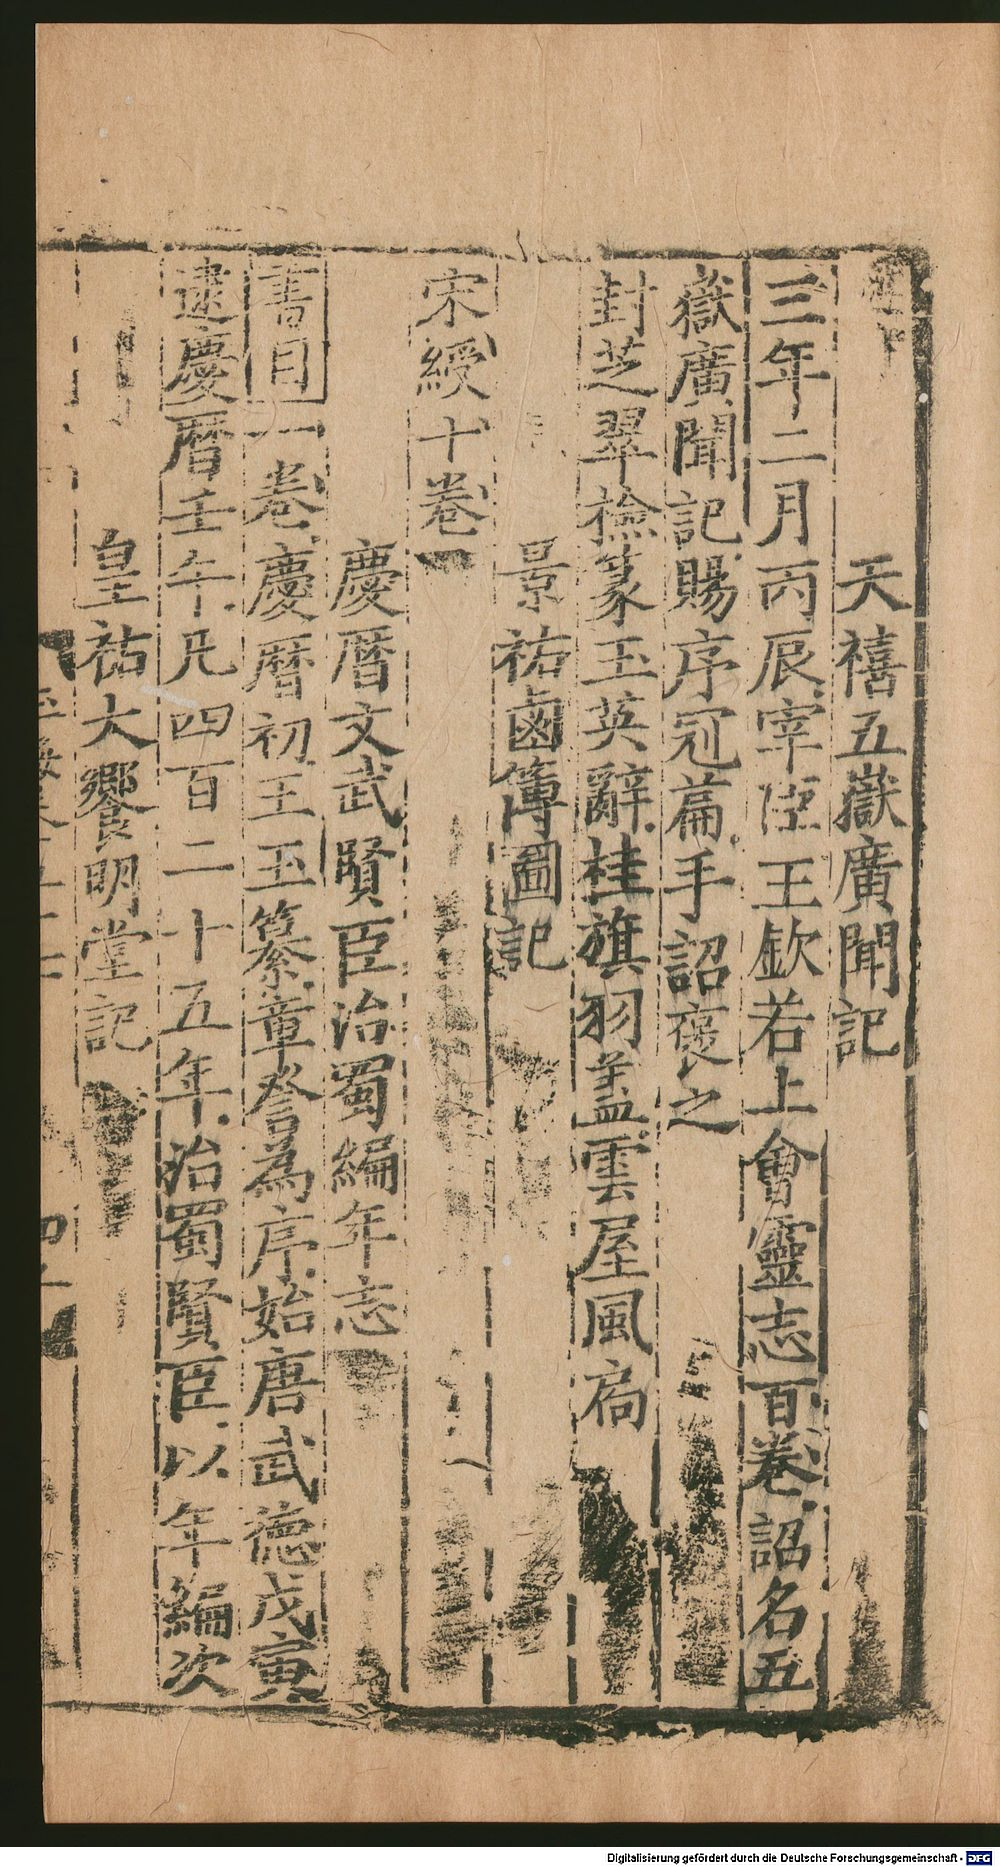 天禧五嶽廣聞記
三年二月丙辰宰臣王欽若上會靈志百卷詔名五
嶽廣聞記賜序冠篇手詔褒之
封芝翠檢篆玉英辭桂旗羽蓋雲屋風扄
景祐鹵簿圖記
宋綬十卷
慶曆文武賢臣治蜀編年志
書目一卷慶曆初王玉纂章詧為序始唐武德戊寅
逮慶曆壬午凡四百二十五年治蜀賢臣以年編次
皇祐大饗明堂記
Digitalisierung gefördert durch die Deutsche Forschungsgemeinschaft - DFG